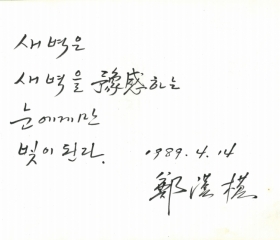 새벽은
새벽을 豫感하는
눈에게만
빛이 된다.
1989. 4. 14
鄭漢模